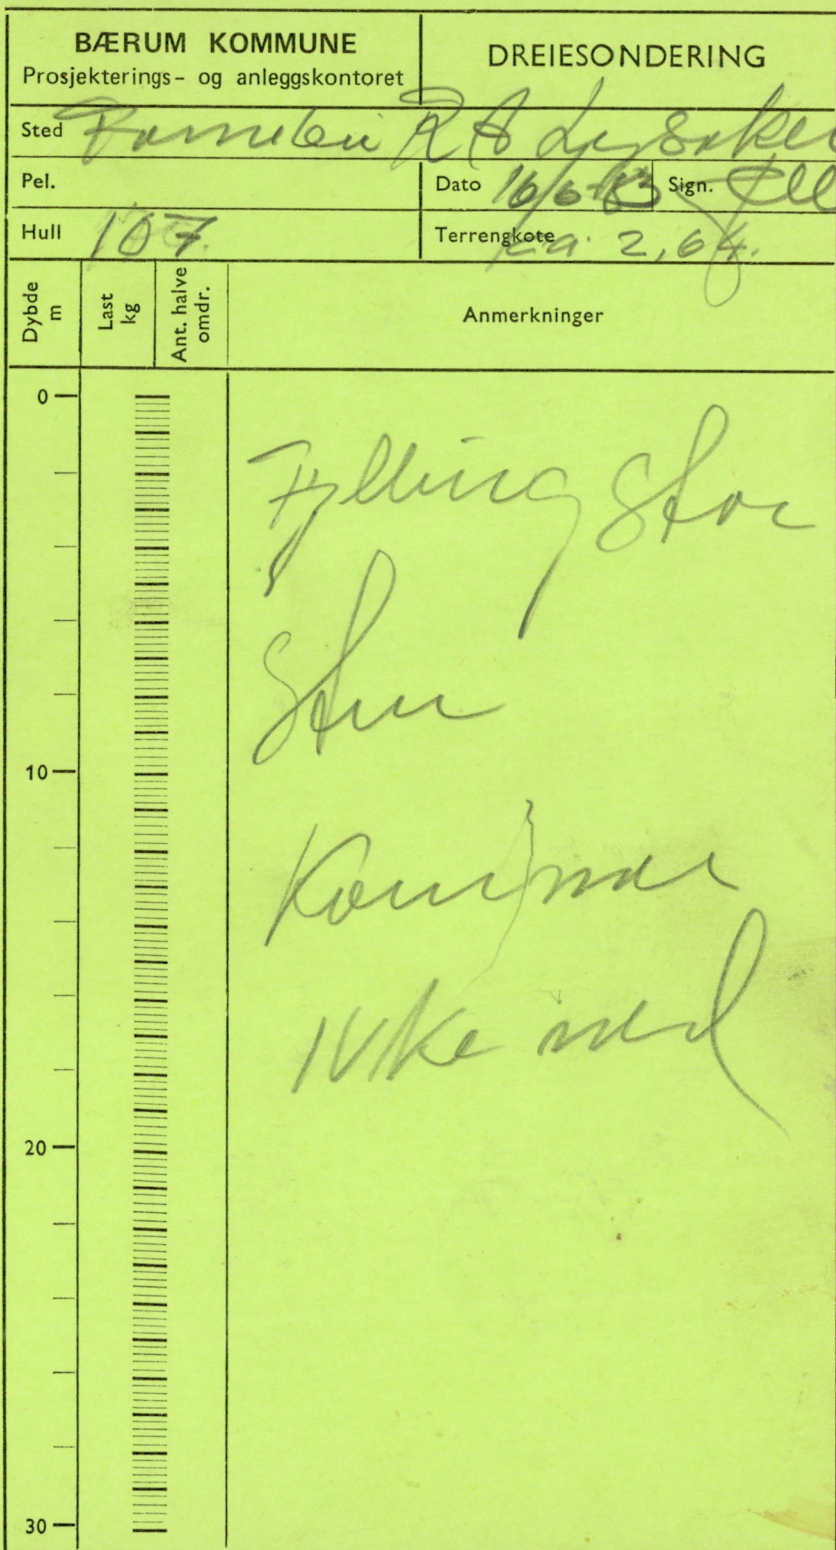 BÆRUM KOMMUNE
Prosjekterings- og anleggskontoret
DREIESONDERING
Sted RA Lysaker
Pel.
Dato 16/6-83 Sign.
Hull 107.
Terrengkote ca. 2,64.
Dybde m
Last kg
Ant. halve omdr.
Anmerkninger
0
Fylling Stor
Sten
10
Kommer
ikke ned
20
30